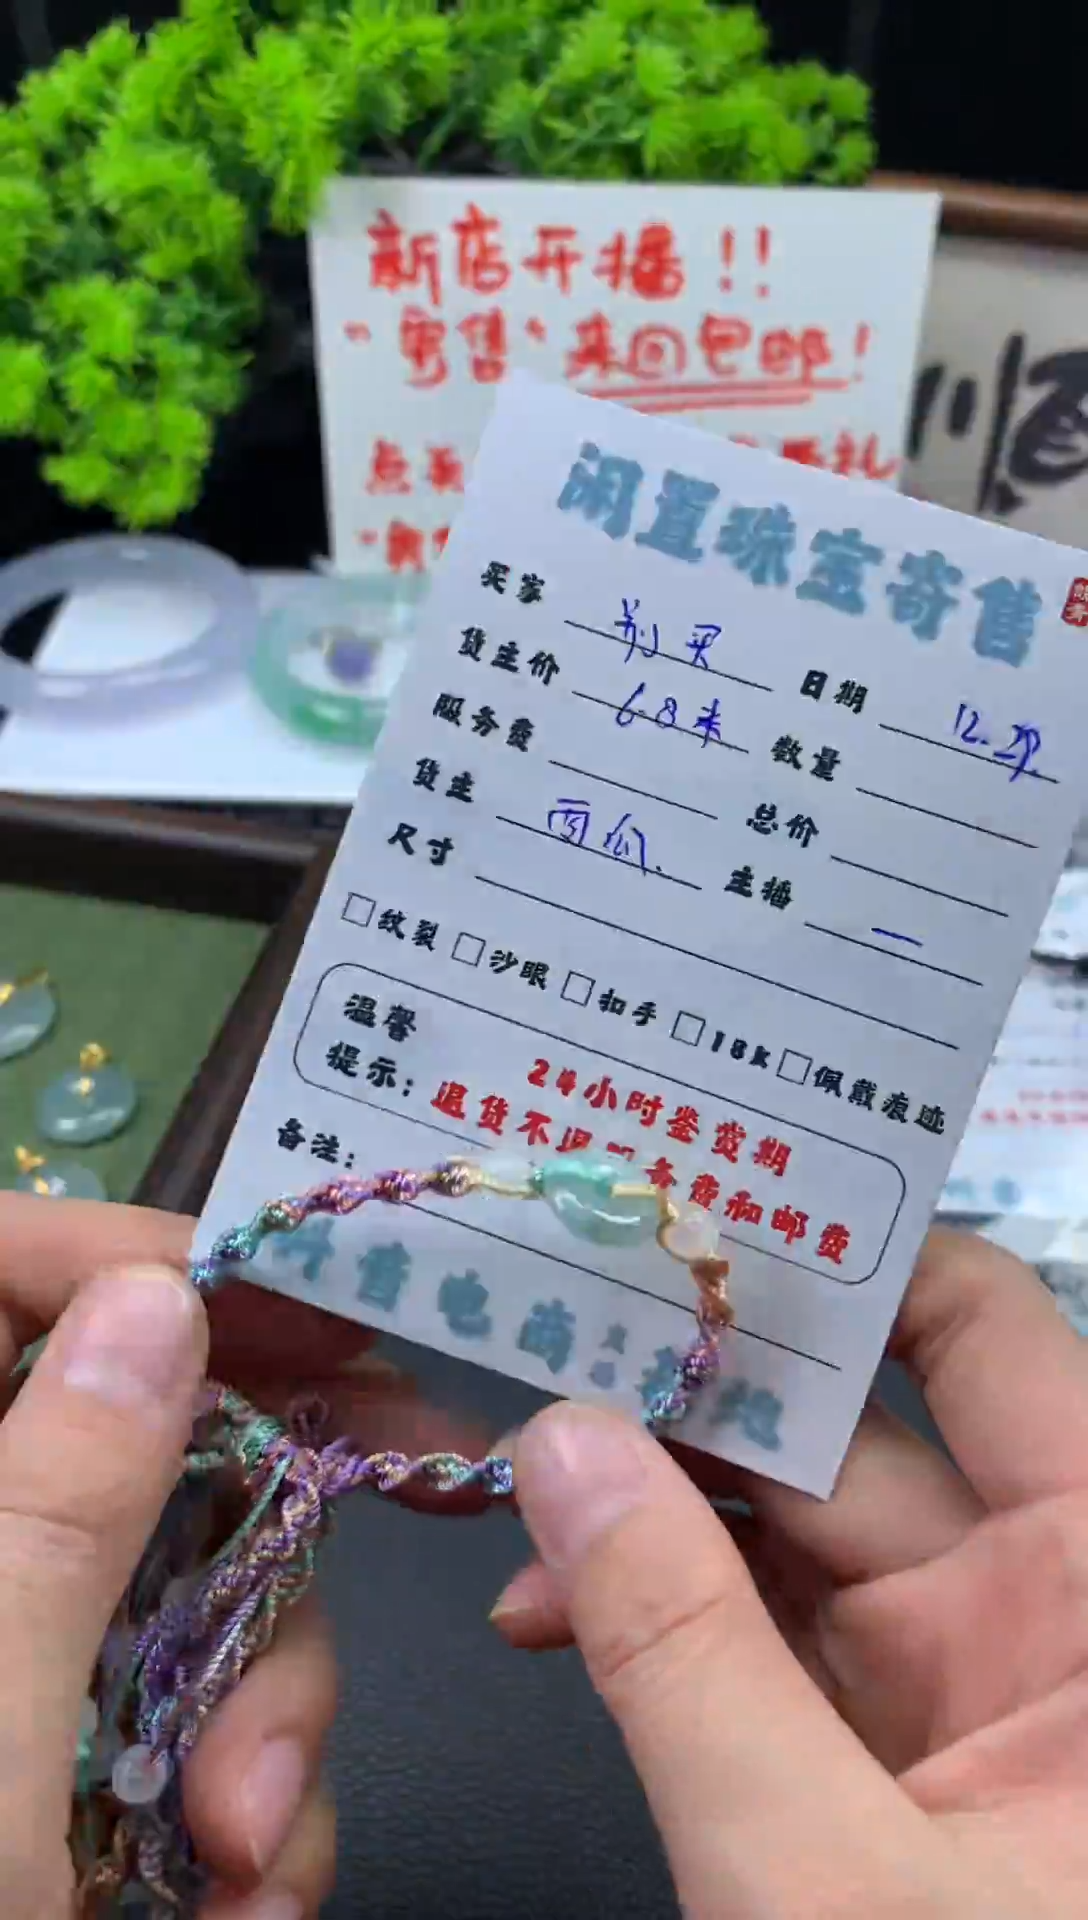 新店开播！！
"寄售"来回包邮！
点关
礼
闲置珠宝寄售
买家 别买 日期 12.29
货主价 6.8米 数量
服务费 总价
货主 西瓜. 主播 一
尺寸
□纹裂 □沙眼 □扣手 □18k □佩戴痕迹
温馨提示：24小时鉴赏期
退货不退服务费和邮费
备注：
售电商